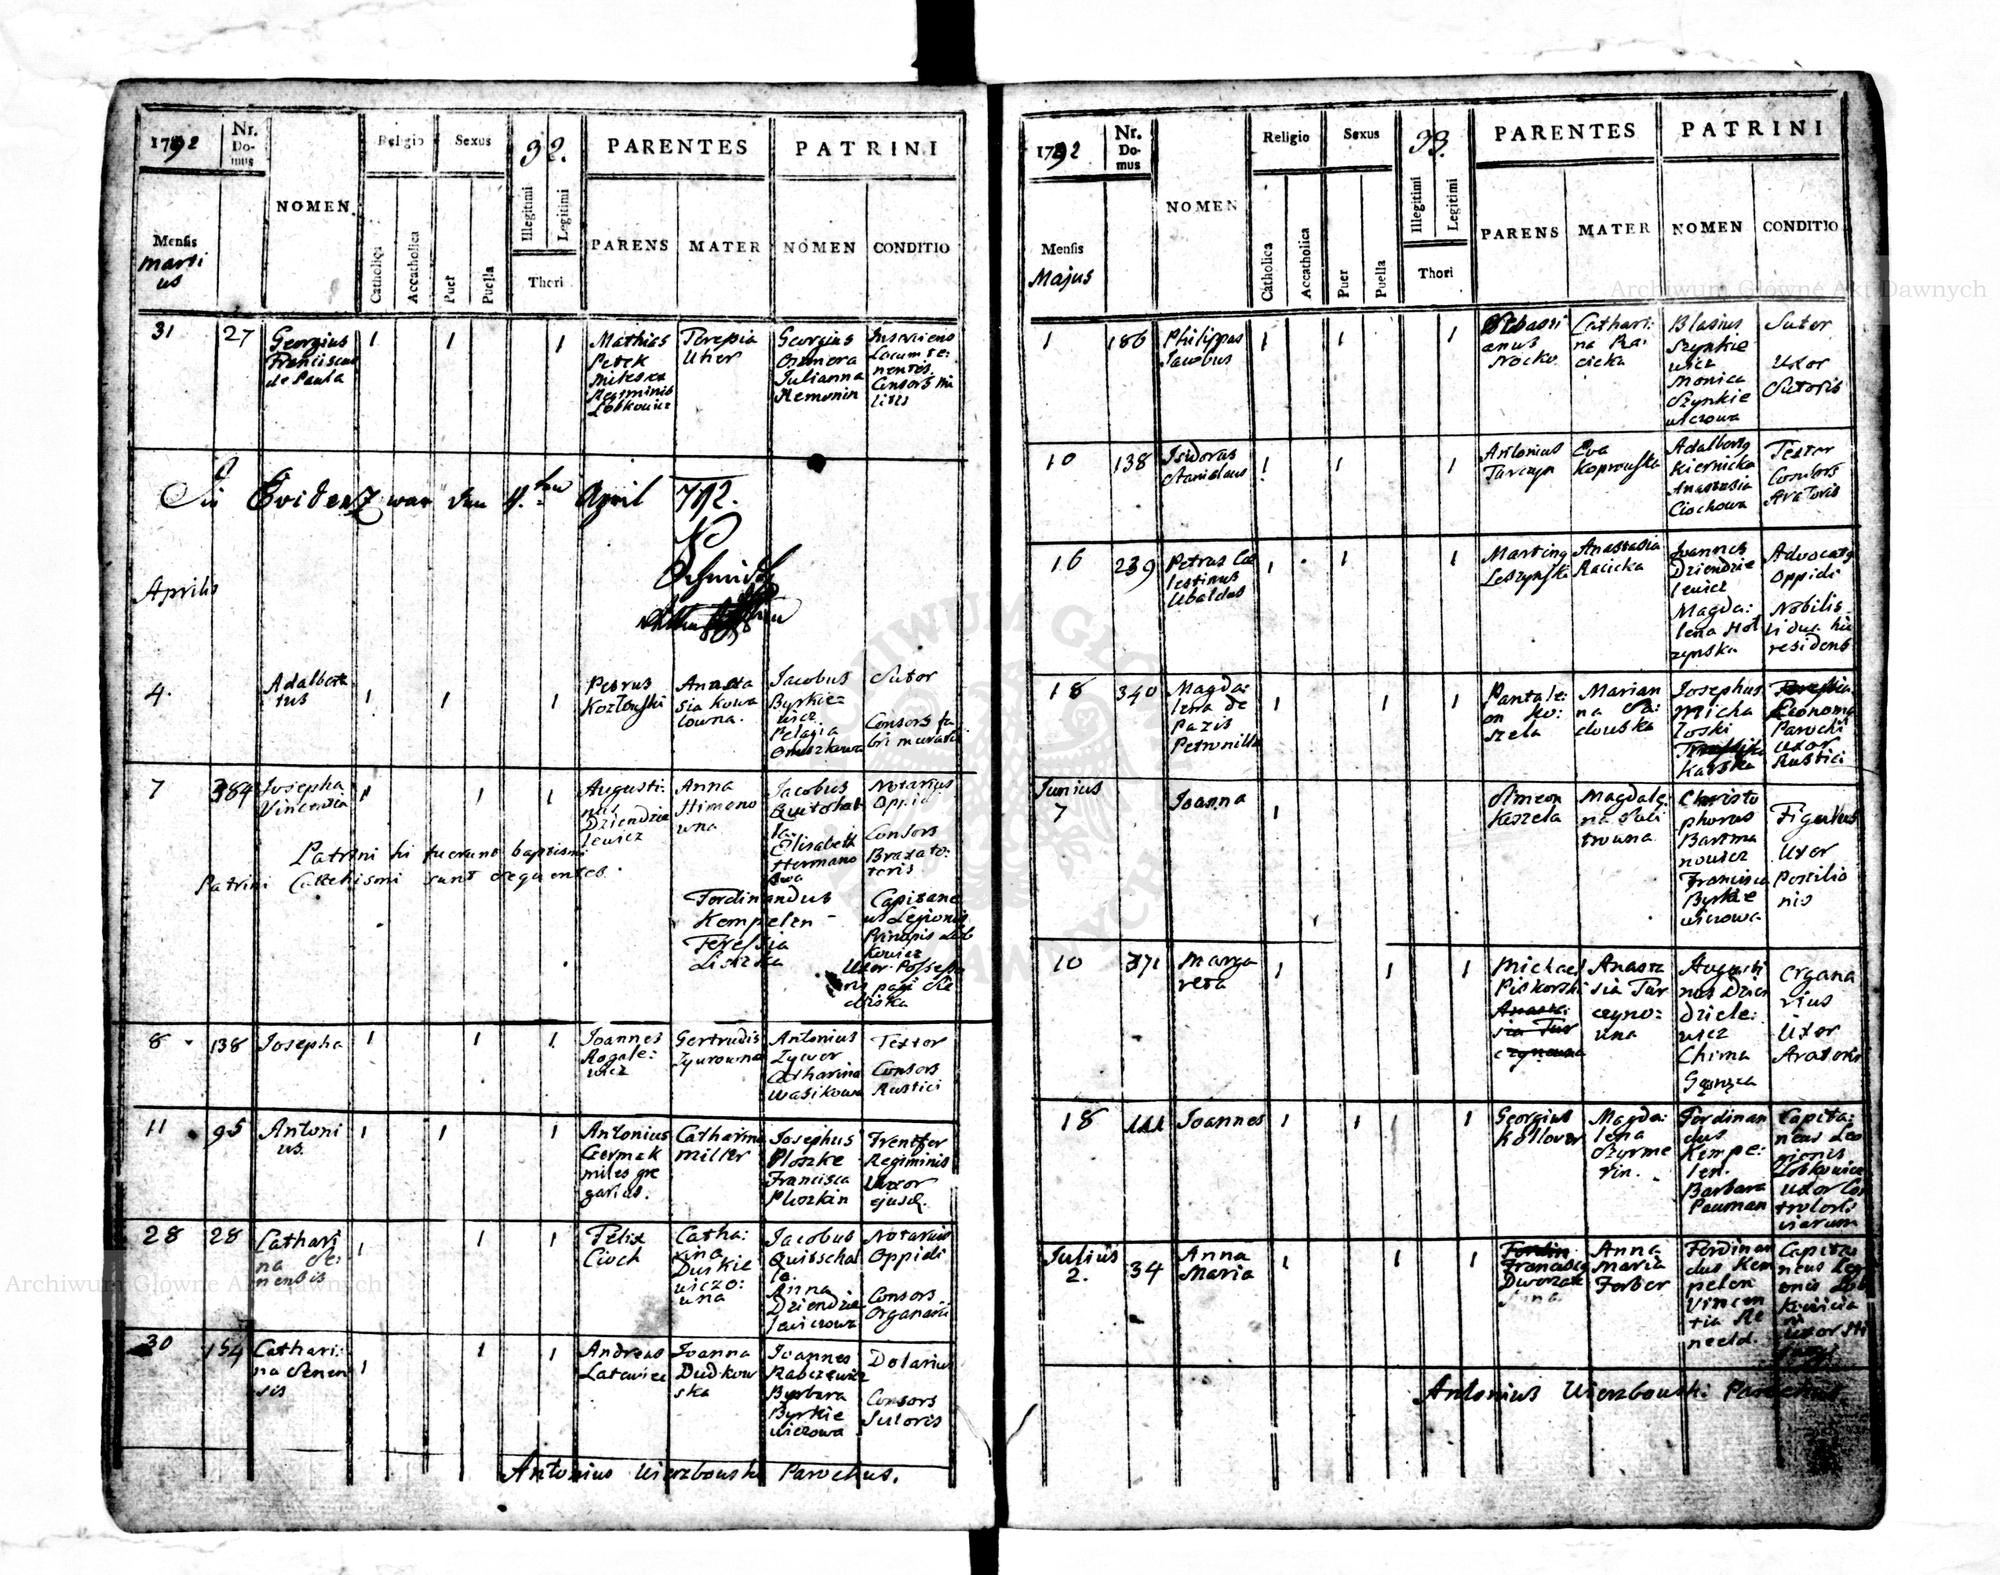 1792
Nr. Domus
NOMEN
Religio
Sexus
32.
PARENTES
PATRINI
Catholica
Accatholica
Puer
Puella
Illegitimi
Legitimi
Thori
PARENS
MATER
NOMEN
CONDITIO
Mensis
Marti
us
31
27
Georgius
Franciscus
de Paula
1
1
1
Mathias
Petek
miles ex
Regiminis
Lobkowicz
Teressia
Georgius
Julianna
In Evidenz war den 4.ten April 792.
Schmidt
Aprilis
4.
Adalber
tus
1
1
1
Petrus
Kozłowski
Anasta
sia Kowa
lowna.
Jacobus
Byrkie-
wicz.
Pelagia
Sutor
Consors fa
bri murarii
7
384
Josepha
Vincentia
1
1
1
Augusti:
nus
Dziendzie
lewicz
Anna
Himono
wna
Jacobus
Quitschal
la.
Elisabeth
Hermano
wa
Notarius
Oppid
Consors
Braxato:
toris
Patrini hi fuerunt baptismi
Patrini Catechismi sunt sequentes.
Ferdinandus
Kempelen -
Teressia
Lisicska
Capitane
us Legionis
Principis Lob
kowicz
Uxor Possesso
ris pagi
8
138
Josepha
1
1
1
Joannes
Rogale:
wicz
Gertrudis
Zyurowna
Antonius
Zywer
Catharina
Wasikowa
Textor
Consors
Rustici
11
95
Antoni
us.
1
1
1
Antonius
Czermak
miles gre
garius.
Catharina
Miller
Josephus
Ploszke
Francisca
Ploszkin
Regiminis
Uxor
ejusd.
28
28
Cathari
na Se:
nensis
1
1
1
Felix
Cioch
Catha:
rina
Duskie
wiczo:
wna
Jacobus
Quitschal
la.
Anna
Dziendzie
lewiczowa
Notarius
Oppidi
Consors
Organarii
30
154
Cathari:
na Senen
sis
1
1
1
Andreas
Latawiec
Joanna
Dudkow
ska
Joannes
Rabczewicz
Barbara
Byrkie
wiczowa
Dolarius
Consors
Sutoris
Antonius Wierzbowski Parochus.
1792
Nr. Domus
NOMEN
Religio
Sexus
33.
PARENTES
PATRINI
Catholica
Accatholica
Puer
Puella
Illegitimi
Legitimi
Thori
PARENS
MATER
NOMEN
CONDITIO
Mensis
Majus
1
186
Philippus
Jacobus
1
1
1
Sebasti
anus
Nocko
Cathari:
na Ra:
cicka
Blasius
Szynkie
wicz
Monica
Szynkie
wiczowa
Sutor
Uxor
Sutoris
10
138
Isidorus
Stanislaus
1
1
1
Antonius
Turczyn
Eva
Koprowska
Adalbertus
Kiernicki
Anastasia
Ciochowa
Textor
Consors
Aratoris
16
239
Petrus Cae
lestinus
Ubaldus
1
1
1
Martinus
Leszynski
Anastasia
Racicka
Joannes
Dziendzie
lewicz
Magda:
lena Hol
zynska
Advocatus
Oppidi
Nobilis
residens
18
340
Magda:
lena de
Pazis
Petronilla
1
1
1
Pantale:
on Ko:
szela
Marian
na Sa:
dowska
Josephus
Micha
loski
Karska
Economus
Parochi
Uxor
Rustici
Junius
7
Joanna
1
Simeon
Koszela
Magdale:
na Soli
trowna
Christo
phorus
Bartma
nowicz
Francisca
Byrkie
wiczowa
Figulus
Uxor
Postilio
nis
10
371
Marga
reta
1
1
1
Michael
Piskorski
Anasta
sia Tur
czyno:
wna
Augusti
nus Dzien
dziele:
wicz
Chima
Organa
rius
Uxor
Aratoris
18
111
Joannes
1
1
1
1
Georgius
Kollover
Magda:
lena
Szyrme
rin.
Ferdinan
dus
Kempe:
len.
Barbara
Pauman
Capita:
neus Leg
gionis
Lobkowicz
Uxor Con
trolori:
Julius
2.
34
Anna
Maria
1
1
1
Franciscus
Dworzak
Anna
Maria
Forber
Ferdinan
dus Kem
pelen
Vincen
tia
Capita
neus Leg
Antonius Wierzbowski Parochus
Archiwum Główne Akt Dawnych
Archiwum Główne Akt Dawnych
ARCHIWUM GŁÓWNE AKT DAWNYCH